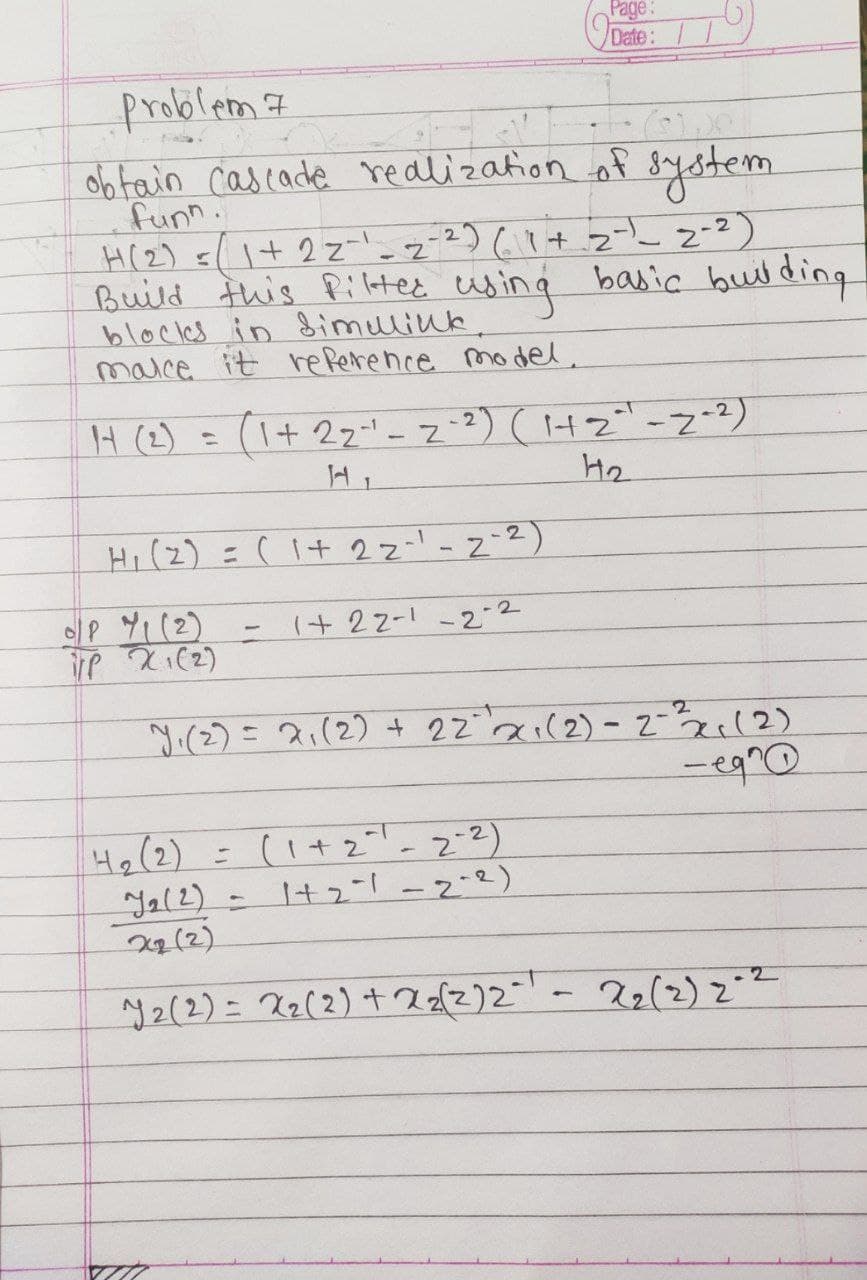 Page:
Date: / /
Problem 7
obtain cascade realization of system
funⁿ.
H(z) = (1 + 2z⁻¹ - z⁻²) (1 + z⁻¹ - z⁻²)
Build this filter using basic building
blocks in simulink.
make it reference model.
H (z) = (1 + 2z⁻¹ - z⁻²) (1 + z⁻¹ - z⁻²)
H₁ H₂
H₁(z) = (1 + 2z⁻¹ - z⁻²)
o/p y₁(z) = 1 + 2z⁻¹ - z⁻²
i/p x₁(z)
y₁(z) = x₁(z) + 2z⁻¹x₁(z) - z⁻²x₁(z)
- eqⁿ ①
H₂(z) = (1 + z⁻¹ - z⁻²)
y₂(z) = 1 + z⁻¹ - z⁻²)
x₂(z)
y₂(z) = x₂(z) + x₂(z)z⁻¹ - x₂(z) z⁻²